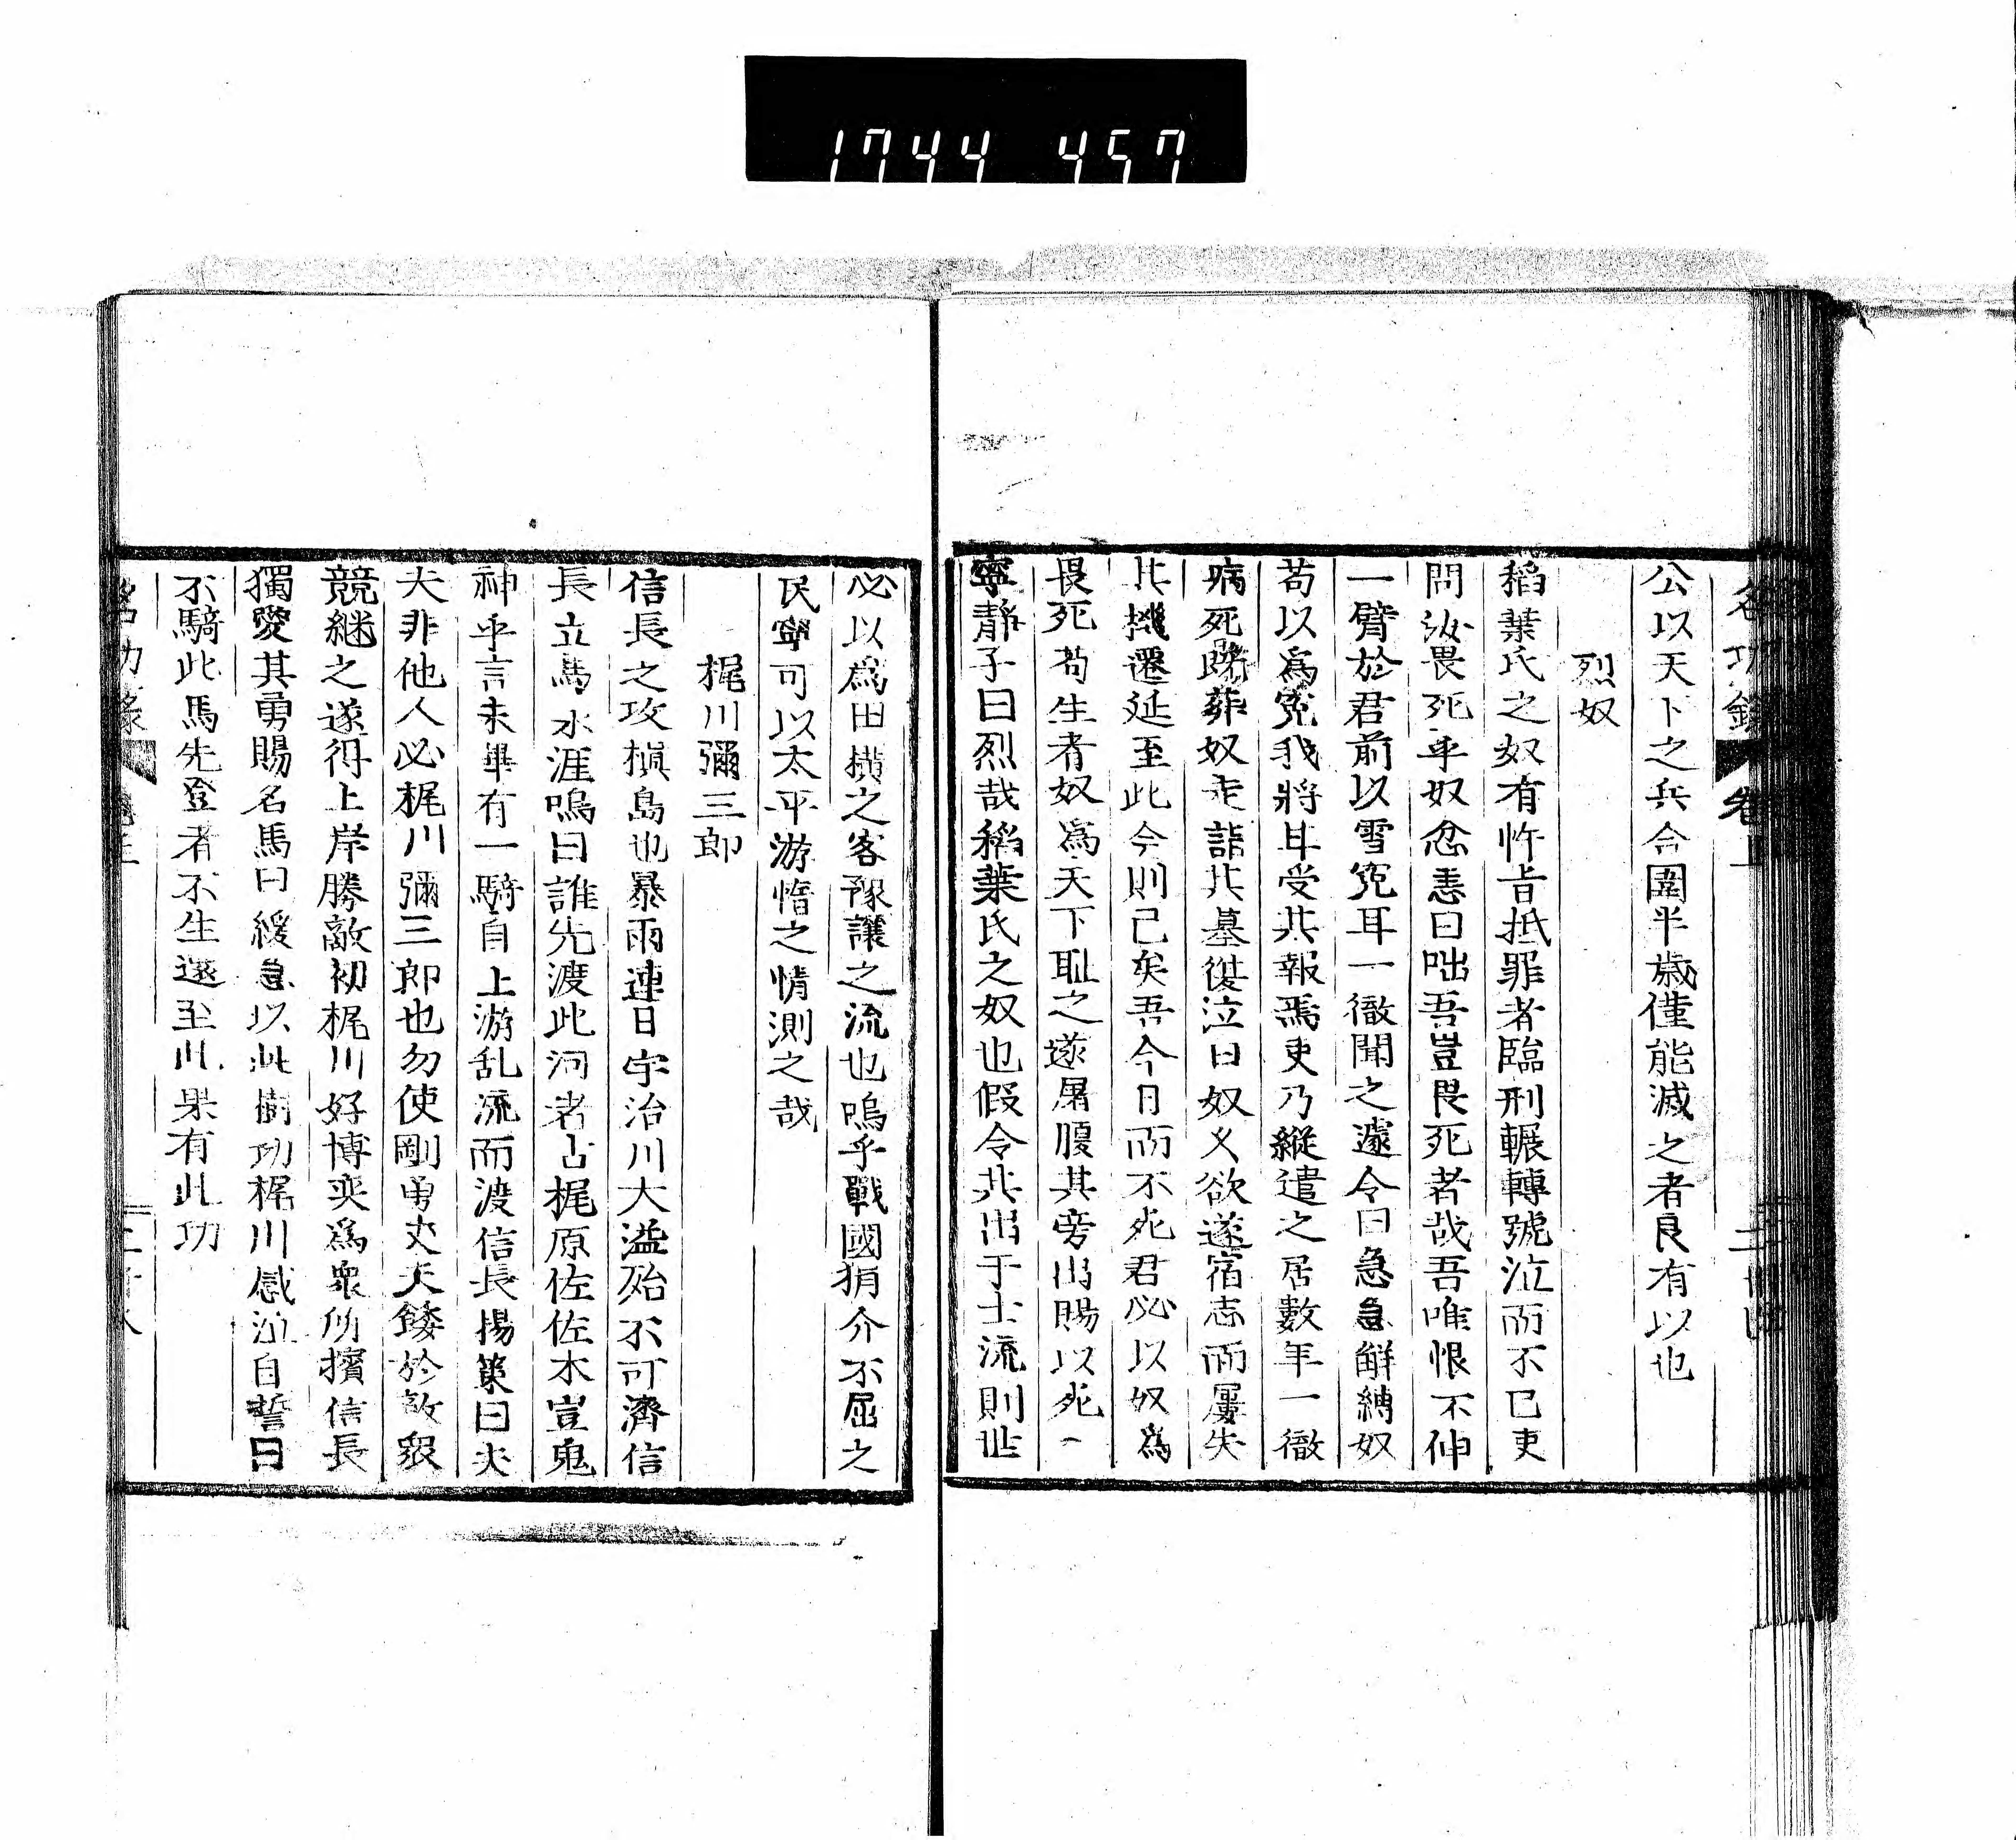 1744 457
公以天下之兵合圍半歲僅能滅之者良有以也
烈奴
稻葉氏之奴有忤旨抵罪者臨刑輾轉號泣而不已吏
問汝畏死乎奴忿恚曰咄吾豈畏死者哉吾唯恨不伸
一臂於君前以雪寃耳一徹聞之遽令曰急急解縛奴
苟以爲寃我將甘受其報焉吏乃縱遣之居數年一徹
病死既葬奴走詣其墓後泣曰奴乂欲遂宿志而屢失
其機遷延至此今則已矣吾今日而不死君必以奴爲
畏死苟生者奴爲天下恥之遂屠腹其旁出賜以死一
寧靜子曰烈哉稻葉氏之奴也假令其出于士流則世
必以爲田橫之客豫讓之流也嗚乎戰國狷介不屈之
民寧可以太平游惰之情測之哉
梶川彌三郎
信長之攻槇島也暴雨連日宇治川大溢殆不可濟信
長立馬水涯嗚曰誰先渡此河者古梶原佐佐木豈鬼
神乎言未畢有一騎自上游乱流而渡信長揚策曰夫
夫非他人必梶川彌三郎也勿使剛勇丈夫餒於敵衆
競継之遂得上岸勝敵初梶川好博奕爲衆所擯信長
獨愛其勇賜名馬曰緩急以此樹功梶川感泣自誓曰
不騎此馬先登者不生還至此果有此功